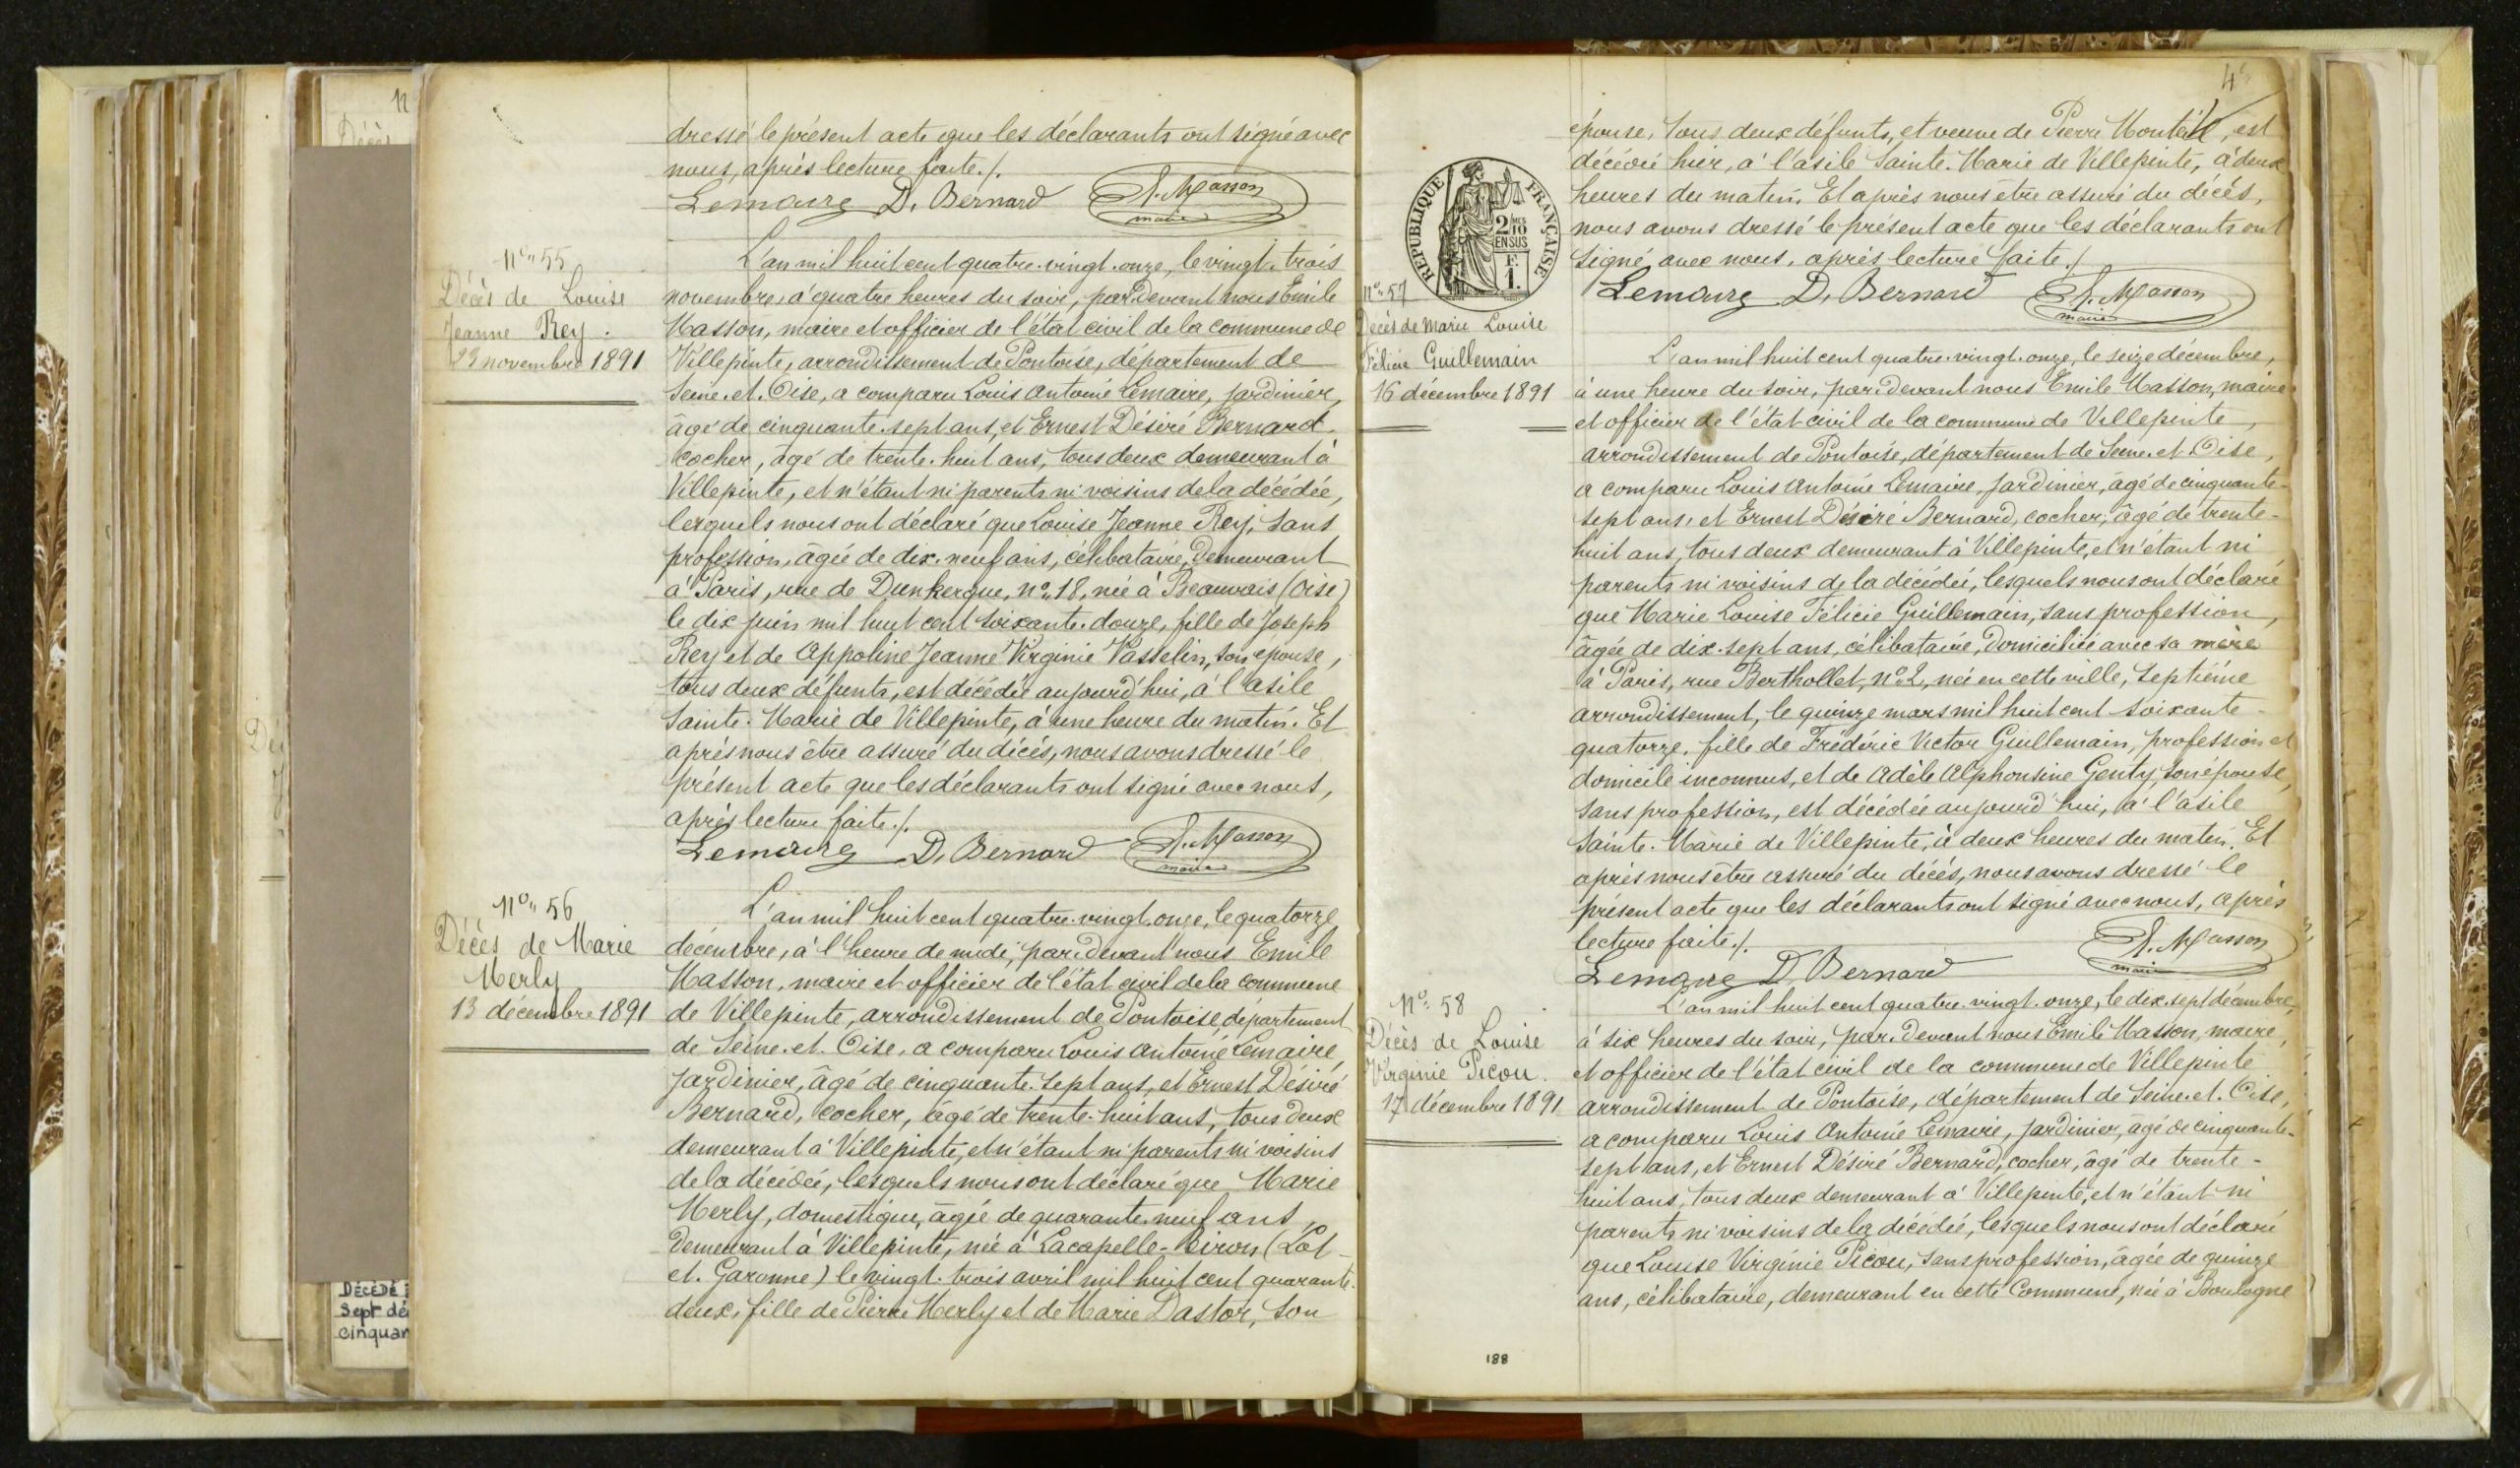 dressé le présent acte que les déclarants ont signé avec
nous, après lecture faite./.
Lemaire D. Bernard E. Masson
maire
N° 55
Décès de Louise
Jeanne Rey.
23 novembre 1891
L'an mil huit cent quatre-vingt-onze, le vingt-trois
novembre, à quatre heures du soir, par-devant nous Emile
Masson, maire et officier de l'état civil de la commune de
Villepinte, arrondissement de Pontoise, département de
Seine-et-Oise, a comparu Louis Antoine Lemaire, jardinier,
âgé de cinquante-sept ans, et Ernest Désiré Bernard,
cocher, âgé de trente-huit ans, tous deux demeurant à
Villepinte, et n'étant ni parents ni voisins de la décédée,
lesquels nous ont déclaré que Louise Jeanne Rey, sans
profession, âgée de dix-neuf ans, célibataire, demeurant
à Paris, rue de Dunkerque, n° 18, née à Beauvais (Oise)
le dix juin mil huit cent soixante-douze, fille de Joseph
Rey et de Appoline Jeanne Virginie Vasselin, son épouse,
tous deux défunts, est décédée aujourd'hui, à l'asile
Sainte-Marie de Villepinte, à une heure du matin. Et
après nous être assuré du décès, nous avons dressé le
présent acte que les déclarants ont signé avec nous,
après lecture faite./.
Lemaire D. Bernard E. Masson
maire
N° 56
Décès de Marie
Merly
13 décembre 1891
L'an mil huit cent quatre-vingt-onze, le quatorze
décembre, à l'heure de midi, par-devant nous Emile
Masson, maire et officier de l'état civil de la commune
de Villepinte, arrondissement de Pontoise, département
de Seine-et-Oise, a comparu Louis Antoine Lemaire,
jardinier, âgé de cinquante-sept ans, et Ernest Désiré
Bernard, cocher, âgé de trente-huit ans, tous deux
demeurant à Villepinte, et n'étant ni parents ni voisins
de la décédée, lesquels nous ont déclaré que Marie
Merly, domestique, âgée de quarante-neuf ans,
demeurant à Villepinte, née à Lacapelle-Biron (Lot-
et-Garonne) le vingt-trois avril mil huit cent quarante-
deux, fille de Pierre Merly et de Marie Dastor, son
DÉCÉDÉ
Sept dé
cinquan
épouse, tous deux défunts, et veuve de Pierre Monteil, est
décédée hier, à l'asile Sainte-Marie de Villepinte, à deux
heures du matin. Et après nous être assuré du décès,
nous avons dressé le présent acte que les déclarants ont
signé, avec nous, après lecture faite./.
Lemaire D. Bernard E. Masson
maire
RÉPUBLIQUE FRANÇAISE
2/10 MES
EN SUS
F.
1.
N° 57
Décès de Marie Louise
Félicie Guillemain
16 décembre 1891
L'an mil huit cent quatre-vingt-onze, le seize décembre,
à une heure du soir, par-devant nous Emile Masson, maire
et officier de l'état civil de la commune de Villepinte,
arrondissement de Pontoise, département de Seine-et-Oise,
a comparu Louis Antoine Lemaire, jardinier, âgé de cinquante-
sept ans, et Ernest Désiré Bernard, cocher, âgé de trente-
huit ans, tous deux demeurant à Villepinte, et n'étant ni
parents ni voisins de la décédée, lesquels nous ont déclaré
que Marie Louise Félicie Guillemain, sans profession,
âgée de dix-sept ans, célibataire, domiciliée avec sa mère
à Paris, rue Berthollet, n° 2, née en cette ville, septième
arrondissement, le quinze mars mil huit cent soixante-
quatorze, fille de Frédéric Victor Guillemain, profession et
domicile inconnus, et de Adèle Alphonsine Genty, son épouse,
sans profession, est décédée aujourd'hui, à l'asile
Sainte-Marie de Villepinte, à deux heures du matin. Et
après nous être assuré du décès, nous avons dressé le
présent acte que les déclarants ont signé avec nous, après
lecture faite./.
Lemaire D. Bernard E. Masson
maire
N° 58
Décès de Louise
Virginie Picou.
17 décembre 1891
L'an mil huit cent quatre-vingt-onze, le dix-sept décembre,
à six heures du soir, par-devant nous Emile Masson, maire,
et officier de l'état civil de la commune de Villepinte
arrondissement de Pontoise, département de Seine-et-Oise,
a comparu Louis Antoine Lemaire, jardinier, âgé de cinquante-
sept ans, et Ernest Désiré Bernard, cocher, âgé de trente-
huit ans, tous deux demeurant à Villepinte, et n'étant ni
parents ni voisins de la décédée, lesquels nous ont déclaré
que Louise Virginie Picou, sans profession, âgée de quinze
ans, célibataire, demeurant en cette commune, née à Boulogne
188